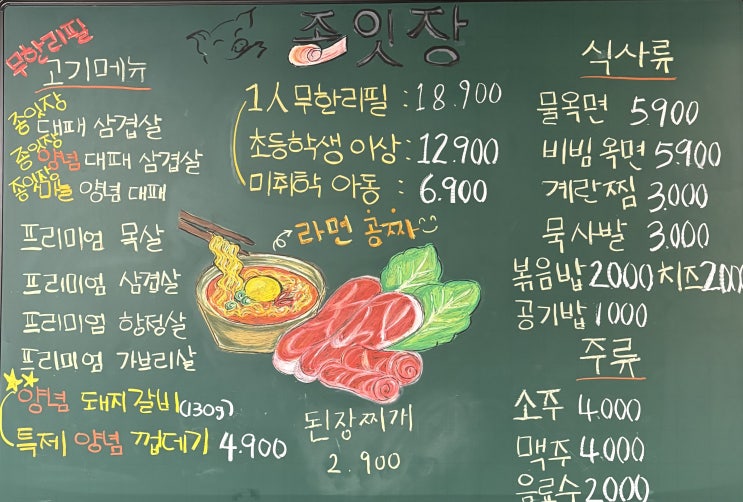 종잇장
무한리필
고기메뉴
종잇장 대패 삼겹살
종잇장 양념 대패 삼겹살
종잇장 마늘 양념 대패
프리미엄 목살
프리미엄 삼겹살
프리미엄 항정살
프리미엄 가브리살
양념 돼지갈비(130g)
특제 양념 껍데기 4.900
1人 무한리필 : 18.900
초등학생 이상 : 12.900
미취학 아동 : 6.900
라면 공짜
된장찌개
2.900
식사류
물옥면 5.900
비빔옥면 5.900
계란찜 3.000
묵사발 3.000
볶음밥 2000 치즈 2000
공기밥 1000
주류
소주 4.000
맥주 4.000
음료수 2.000